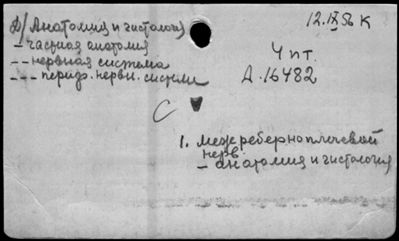 А/Анатомия и гистология
12.IX 56 К
- частная анатомия
-- нервная система
--- периф. нервн. система
4 пт.
А.16482
С
1. межреберноплечевой
нерв
- анатомия и гистология